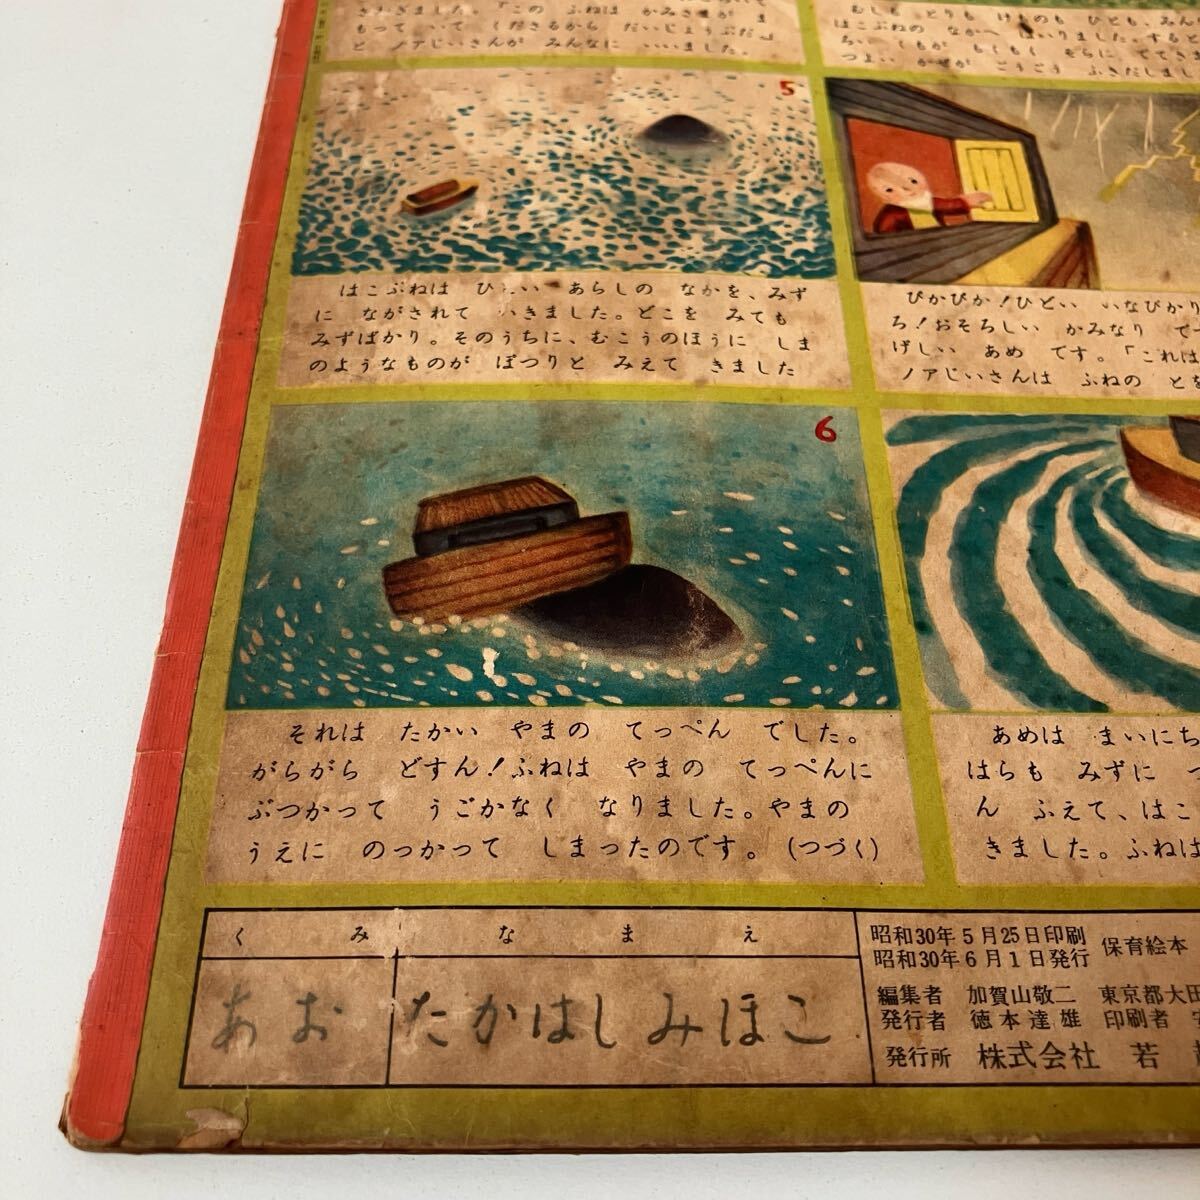 さわぎました。「この ふねは かみさまが ま
もって いて くださるから だいじょうぶだ」
と ノアじいさんが みんなに いいました。
むし、 とりも けものも ひとも、みん
はこぶねの なかへ はいりました。すると
ちい くもが もくもく そらに でてき
つよい かぜが ごうごう ふきだしまし
5
はこぶねは ひどい あらしの なかを、みず
に ながされて いきました。どこを みても
みずばかり。そのうちに、むこうのほうに しま
のようなものが ぽつりと みえて きました
ぴかぴか!ひどい いなびかり
ろ!おそろしい かみなり で
げしい あめ です。「これは
ノアじいさんは ふねの とを
6
それは たかい やまの てっぺん でした。
がらがら どすん!ふねは やまの てっぺんに
ぶつかって うごかなく なりました。やまの
うえに のっかって しまったのです。(つづく)
あめは まいにち
はらも みずに つ
ん ふえて、はこ
きました。ふねは
くみ なまえ
あお たかはしみほこ
昭和30年5月25日印刷
昭和30年6月1日発行
保育絵本
編集者 加賀山敬二 東京都大田
発行者 徳本達雄 印刷者
発行所 株式会社 若